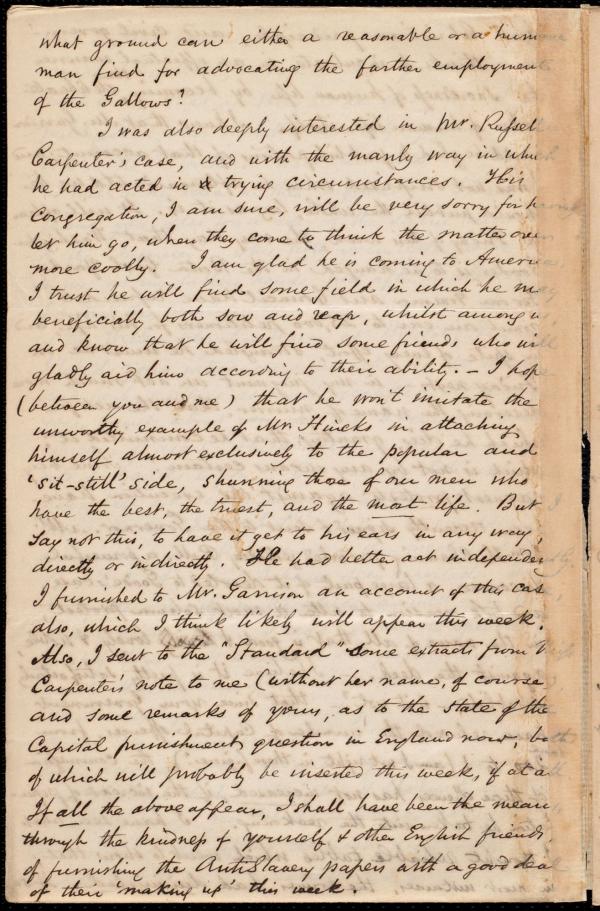 what ground can either a reasonable or a humane
man find for advocating the farther employment
of the Gallows?
I was also deeply interested in Mr. Russell
Carpenter's case, and with the manly way in which
he had acted in trying circumstances. His
congregation, I am sure, will be very sorry for having
let him go, when they come to think the matter over
more coolly. I am glad he is coming to America
I trust he will find some field in which he may
beneficially both sow and reap, whilst among us,
and know that he will find some friends who will
gladly aid him according to their ability. - I hope
(between you and me) that he won't imitate the
unworthy example of Mr. Hincks in attaching
himself almost exclusively to the popular and
'sit-still' side, shunning those of our men who
have the best, the truest, and the most life. But I
say not this, to have it get to his ears in any way,
directly or indirectly. He had better act independently
I furnished to Mr. Garrison an account of this case
also, which I think likely will appear this week.
Also, I sent to the "Standard" some extracts from
Carpenter's note to me (without her name, of course)
and some remarks of yours, as to the state of the
Capital punishment question in England now; both
of which will probably be inserted this week, if at all
If all the above appear, I shall have been the means
through the kindness of yourself & other English friends,
of furnishing the AntiSlavery papers with a good deal
of their 'making up' this week.